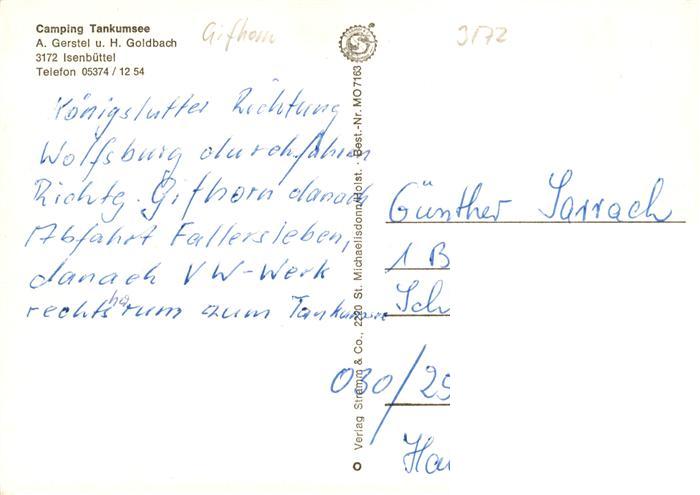 Camping Tankumsee
A. Gerstel u. H. Goldbach
3172 Isenbüttel
Telefon 05374 / 12 54
Gifhorn
3172
Königslutter Richtung
Wolfsburg durchfahren
Richtg. Gifhorn danach
Abfahrt Fallersleben,
danach VW-Werk
rechts harum zum Tankumsee
Verlag Stramm & Co., 2220 St. Michaelisdonn/Holst. · Best.-Nr. MO 7163
Günther Sarrach
1 B
Sch
030/25
Hau